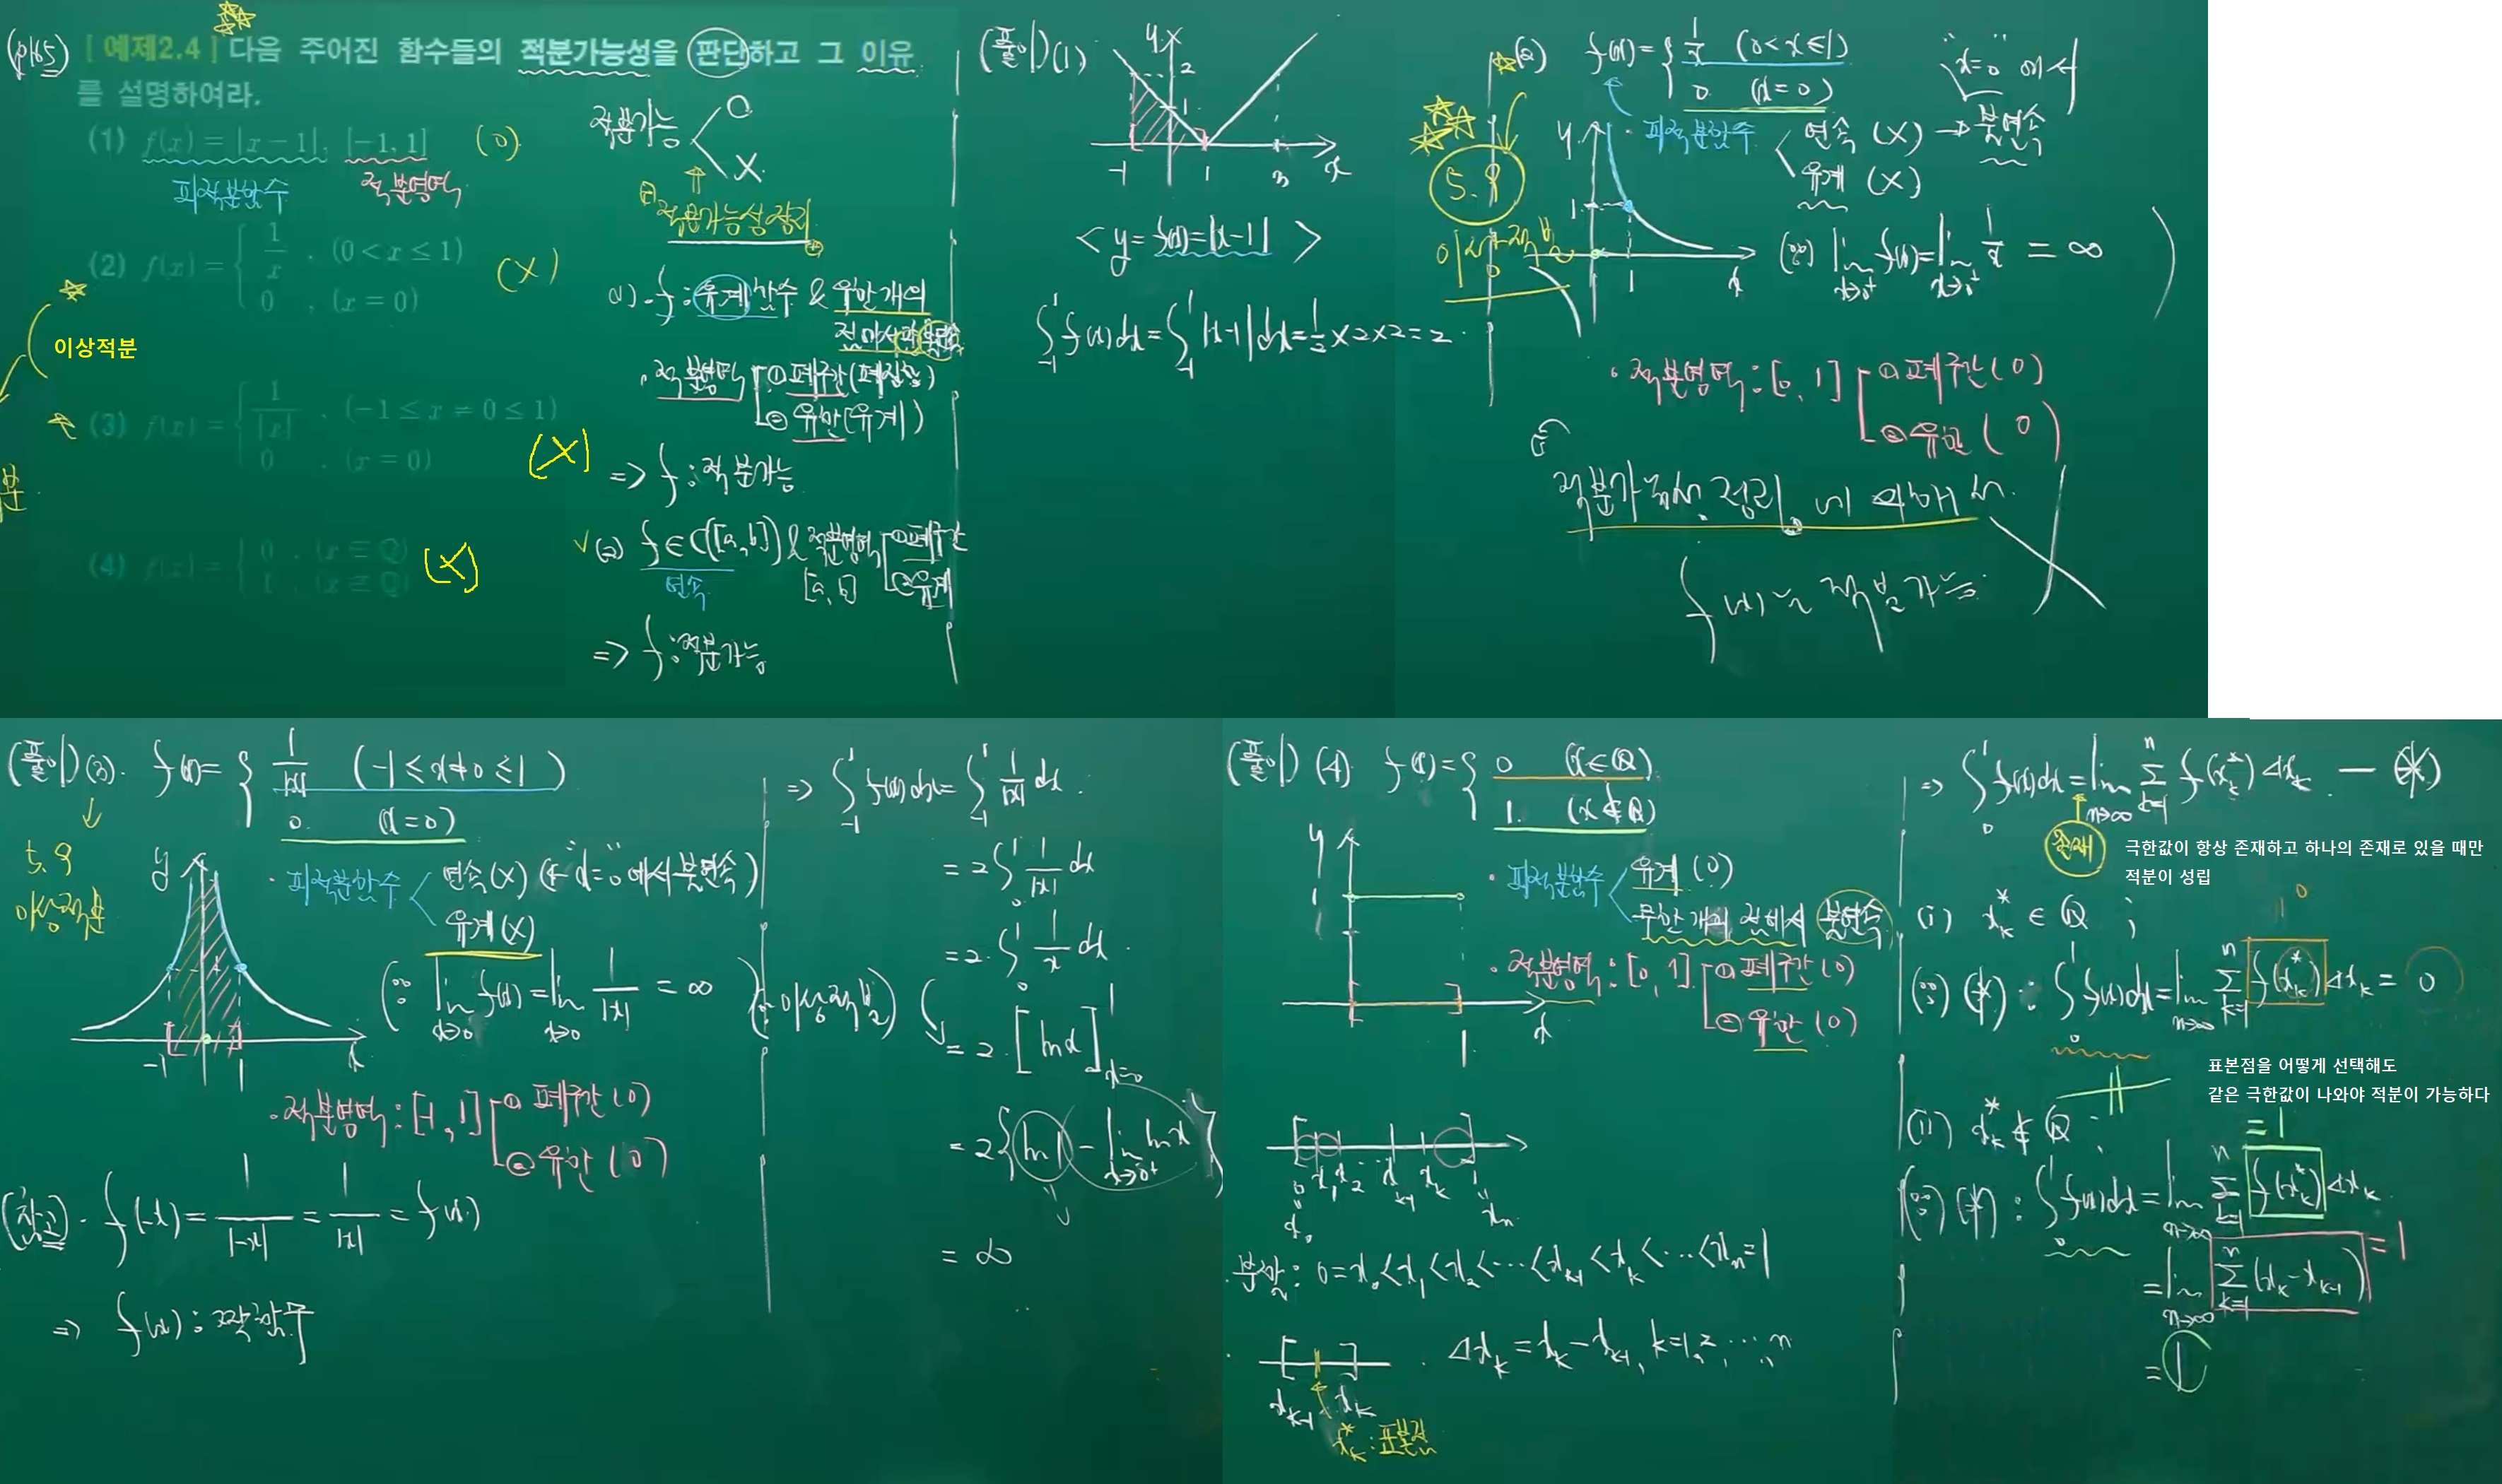 (p165) [예제2.4] 다음 주어진 함수들의 적분가능성을 판단하고 그 이유
를 설명하여라.
(1) f(x) = |x-1|, [-1, 1] (O)
피적분함수 적분영역
(2) f(x) = { 1/x , (0 < x ≤ 1)
0 , (x = 0) (X)
이상적분
(3) f(x) = { 1/|x| , (-1 ≤ x ≠ 0 ≤ 1)
0 , (x = 0) (X)
(4) f(x) = { 0 , (x ∈ Q)
1 , (x ∉ Q) (X)
적분가능 < O
X
적분가능성정리
(1). f : 유계함수 & 유한개의
점에서만 불연속
· 적분영역 ① 폐구간(폐집합)
② 유한(유계)
=> f : 적분가능
(2) f ∈ C([a, b]) & 적분영역 ① 폐구간
연속 [a, b] ② 유계
=> f : 적분가능
(풀이) (1)
y
2
1
-1 1 3 x
< y = f(x) = |x-1| >
∫₋₁¹ f(x)dx = ∫₋₁¹ |x-1|dx = 1/2 × 2 × 2 = 2.
(2) f(x) = { 1/x (0 < x ≤ 1)
0. (x = 0)
"x=0" 에서
· 피적분함수 < 연속 (X) → 불연속
유계 (X)
5.9
이상적분
y
1
1 x
(∵) lim_{x→0⁺} f(x) = lim_{x→0⁺} 1/x = ∞
· 적분영역 : [0, 1] ① 폐구간(O)
② 유한 (O)
적분가능성 정리에 의해서
f(x)는 적분가능
(풀이) (3). f(x) = { 1/|x| (-1 ≤ x ≠ 0 ≤ 1)
0. (x = 0)
5.9
이상적분
y
-1 1 x
· 피적분함수 < 연속(X) (← "x=0"에서 불연속)
유계(X)
(∵ lim_{x→0} f(x) = lim_{x→0} 1/|x| = ∞ )
· 적분영역 : [-1, 1] ① 폐구간(O)
② 유한 (O)
(참고) · f(-x) = 1/|-x| = 1/|x| = f(x)
=> f(x) : 짝함수
=> ∫₋₁¹ f(x)dx = ∫₋₁¹ 1/|x| dx.
= 2∫₀¹ 1/|x| dx
= 2·∫₀¹ 1/x dx.
(∵ 이상적분)
= 2·[ln x]_{x=0}^{1}
= 2{ ln 1 - lim_{x→0⁺} ln x }
= ∞
(풀이) (4). f(x) = { 0 (x ∈ Q)
1. (x ∉ Q)
y
1
1 x
· 피적분함수 < 유계 (O)
무한개의 점에서 불연속
· 적분영역 : [0, 1]. ① 폐구간(O)
② 유한 (O)
0 x₁ x₂ ... x_{k-1} x_k 1
x₀ x_n
· 분할 : 0 = x₀ < x₁ < x₂ < ··· < x_{k-1} < x_k < ··· < x_n = 1
· Δx_k = x_k - x_{k-1}, k = 1, 2, ···, n
x_{k-1} x_k
x_k* : 표본점
=> ∫₀¹ f(x)dx = lim_{n→∞} Σ_{k=1}^{n} f(x_k*) Δx_k — (*)
존재
극한값이 항상 존재하고 하나의 존재로 있을 때만
적분이 성립
(i) x_k* ∈ Q ;
0
(∵) (*) : ∫₀¹ f(x)dx = lim_{n→∞} Σ_{k=1}^{n} f(x_k*) Δx_k = 0
표본점을 어떻게 선택해도
같은 극한값이 나와야 적분이 가능하다
(ii) x_k* ∉ Q ;
= 1
(∵) (*) : ∫₀¹ f(x)dx = lim_{n→∞} Σ_{k=1}^{n} f(x_k*) Δx_k
= lim_{n→∞} Σ_{k=1}^{n} (x_k - x_{k-1}) = 1
= 1